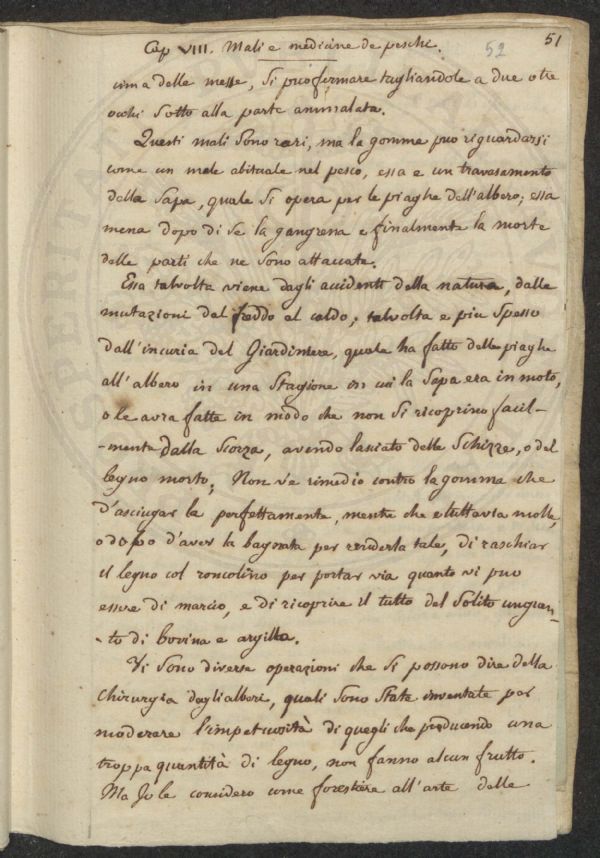 Cap VIII. Mali e medicine de peschi.
52
51
cima delle messe, si può fermare tagliandole a due o tre
occhi sotto alla parte ammalata.
Questi mali sono rari, ma la gomma puo riguardarsi
come un male abituale nel pesco, essa e un travasamento
della Sapa, quale si opera per le piaghe dell'albero; essa
mena dopo di se la gangrena e finalmente la morte
delle parti che ne sono attaccate.
Essa talvolta viene dagli accidenti della natura, dalle
mutazioni del freddo al caldo; talvolta e piu spesso
dall'incuria del Giardiniere, quale ha fatto delle piaghe
all'albero in una Stagione in cui la Sapa era in moto,
o le avra fatte in modo che non si ricoprino facil-
-mente dalla Scorza, avendo lasciato delle Schizze, o del
legno morto; Non v'e rimedio contro la gomma che
d'asciugar la perfettamente, mentre che e tuttavia molle,
o dopo d'aver la bagnata per renderla tale, di raschiar
il legno col roncolino per portar via quanto vi puo
essere di marcio, e di ricoprire il tutto del Solito unguen-
-to di bovina e argilla.
Vi sono diverse operazioni che si possono dire della
Chirurgia degli alberi, quali sono state inventate per
moderare l'impetuosità di quegli che producendo una
troppa quantità di legno, non fanno alcun frutto.
Ma Io le considero come forestiere all'arte delle